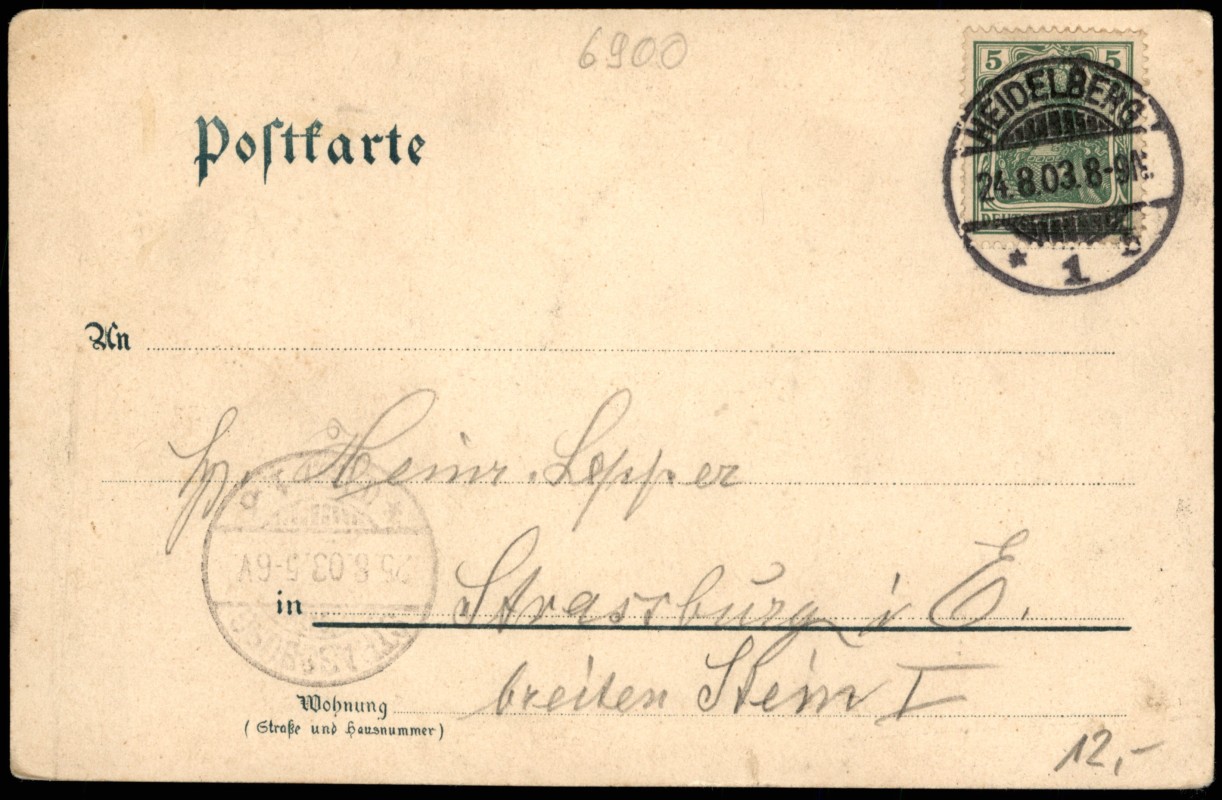 6900
Postkarte
5 5
HEIDELBERG
24.8.03.8-9N.
* 1 b
An
Hr. Heinr. Lepper
25.8.03.5-6V.
in Strassburg i E.
breiten Stein I
Wohnung
(Straße und Hausnummer)
12,-